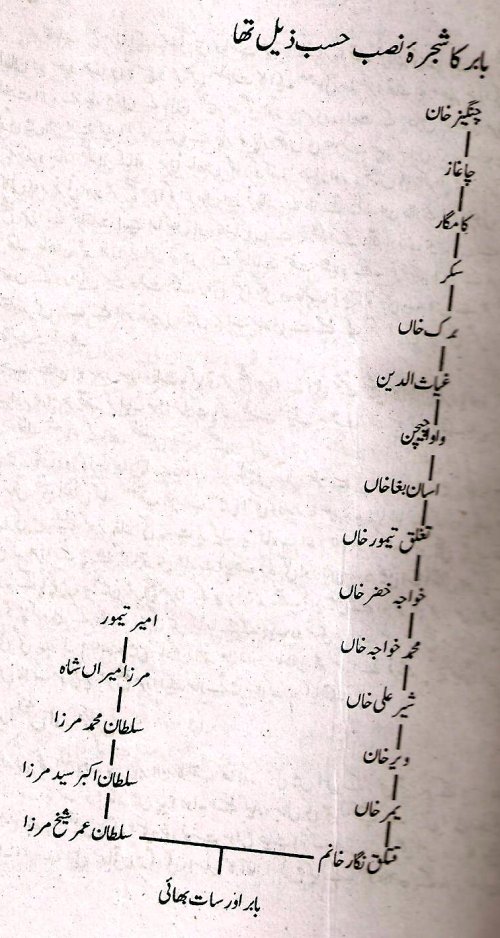 بابر کا شجرۂ نصب حسب ذیل تھا
چنگیز خان
چاغاز
کامگار
سکر
مدک خاں
غیاث الدین
واواچیچن
اسان بغا خاں
تغلق تیمور خاں
خواجہ خضر خاں
محمد خواجہ خاں
شیر علی خاں
ویر خان
یمر خاں
قتلق نگار خانم
امیر تیمور
مرزا میراں شاہ
سلطان محمد مرزا
سلطان اکبر سید مرزا
سلطان عمر شیخ مرزا
بابر اور سات بھائی